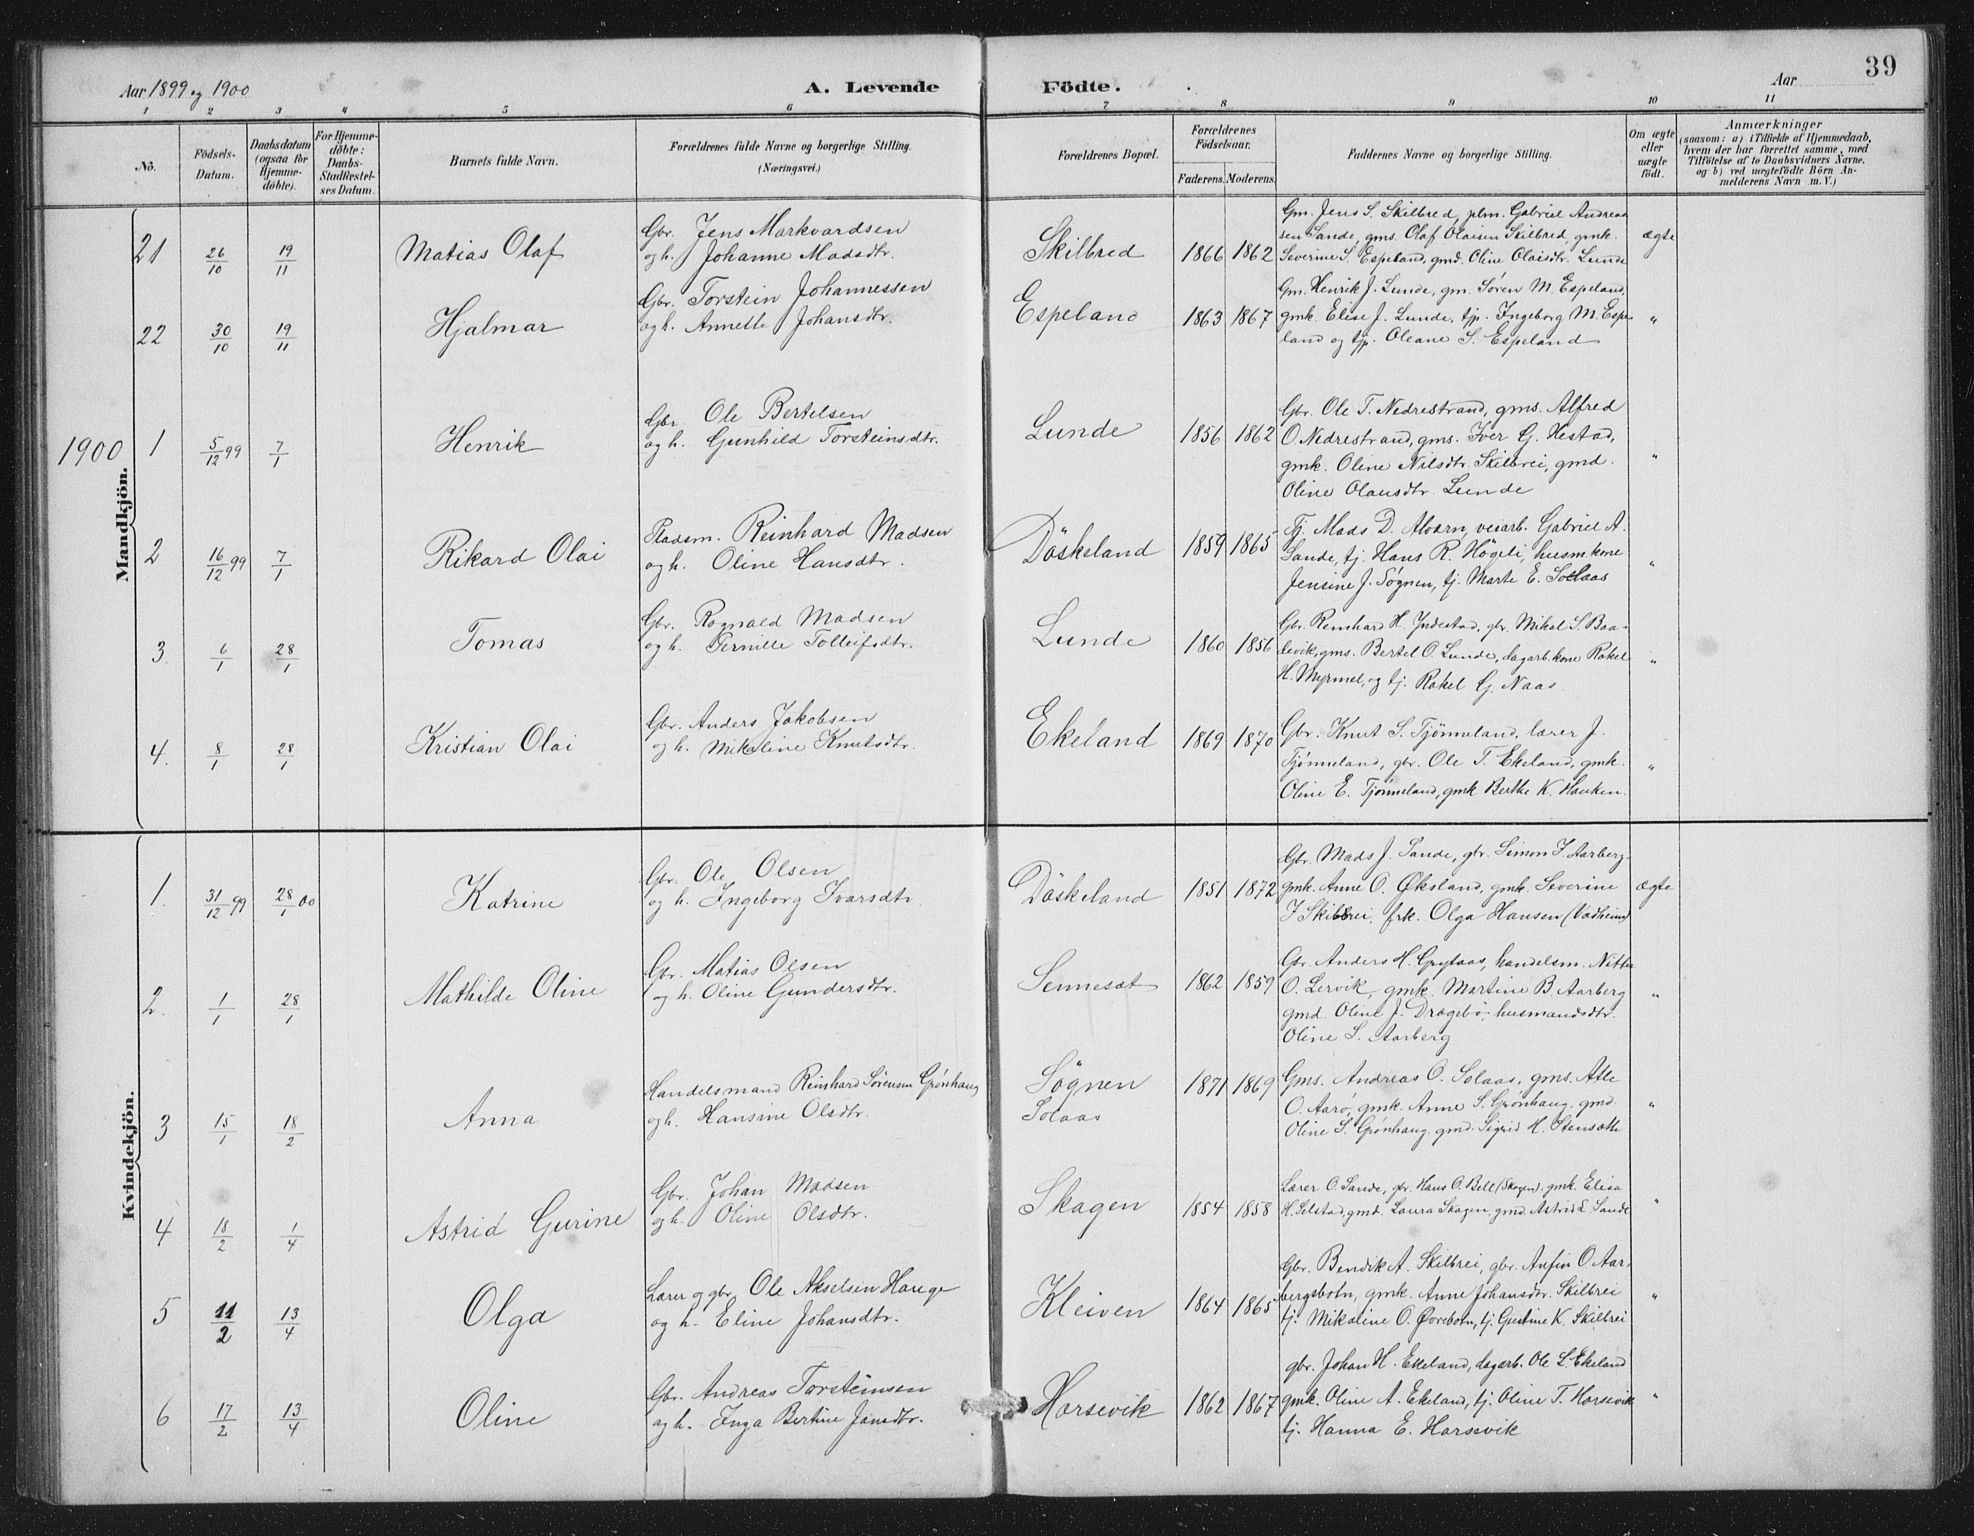 Aar 1899 og 1900
A. Levende Födte.
Aar
39
1 2 3 4 5 6 7 8 9 10 11
No.
Födsels-Datum.
Daabsdatum (ogsaa for Hjemme-døbte).
For Hjemme-døbte: Daabs-Stadfæstelses Datum.
Barnets fulde Navn.
Forældrenes fulde Navne og borgerlige Stilling.
(Næringsvei.)
Forældrenes Bopæl.
Forældrenes Födselsaar.
Faderens. Moderens.
Faddernes Navne og borgerlige Stilling.
Om ægte eller uægte födt.
Anmærkninger
(saasom: a) i Tilfælde af Hjemmedaab, hvem der har forrettet samme, med Tilföielse af to Daabsvidners Navne, og b) ved uægtefödte Börn Anmelderens Navn m. V.)
Mandkjön.
21 26/10 19/11 Matias Olaf
Gbr. Jens Markvardsen
og h. Johanne Madsdtr.
Skilbred 1866 1862
Gm. Jens S. Skilbred, plm. Gabriel Andrea
sen Sande, gms. Olaf Olaisen Skilbred, gmk.
Severine S. Espeland, gmd. Oline Olaisdtr. Lunde
ægte
22 30/10 19/11 Hjalmar
Gbr. Torstein Johannessen
og h. Annette Johansdtr.
Espeland 1863 1867
Gm. Henrik J. Lunde, gm. Søren M. Espeland,
gmk. Elise J. Lunde, tjp. Ingeborg M. Espe
land og tjp. Oleane S. Espeland
"
1900
1 5/12 99 7/1 Henrik
Gbr. Ole Bertelsen
og h. Gunhild Torsteinsdtr.
Lunde 1856 1862
Gbr. Ole T. Nedrestrand, gms. Alfred
O Nedrestrand, gms. Iver G. Hestad,
gmk. Oline Nilsdtr. Skilbrei, gmd.
Oline Olausdtr. Lunde
"
2 16/12 99 7/1 Rikard Olai
Pladsm. Reinhard Madsen
og h. Oline Hansdtr.
Döskeland 1859 1865
Tj. Mads D. Alværn, veiarb. Gabriel A.
Sande, tj. Hans R. Högeli, husmkone
Jensine J. Søgnen, tj. Marte E. Solaas
"
3. 6/1 28/1 Tomas
Gbr. Rognald Madsen
og h. Pernille Tolleifsdtr.
Lunde 1860 1856
Gbr. Reinhard H. Yndestad, gbr. Mikal S. Baa-
levik, gms. Bertel O. Lunde, dagarb.kone Rakel
H. Myrmel, og tj. Rakel G. Naas.
"
4. 8/1 28/1 Kristian Olai
Gbr. Anders Jakobsen
og h. Mikeline Knutsdtr.
Ekeland 1869 1870
Gbr. Knut S. Tjønneland, lærer J.
Tjønneland, gbr. Ole T. Ekeland, gmk.
Oline E. Tjønneland, gmk Berthe K. Hauken.
"
Kvindekjön.
1. 31/12 99 28/1 00 Katrine
Gbr. Ole Olsen
og h. Ingeborg Ivarsdtr.
Döskeland 1851 1872
Gbr. Mads J. Sande, gbr. Simon J Aarberg.
gmk. Anne O. Øksland, gmk. Severine
J Skilbrei, frk. Olga Hansen (Vadheim)
ægte
2. 1/1 28/1 Mathilde Oline
Gbr. Matias Olsen
og h. Oline Gundersdtr.
Sennesæt 1862 1859
Gbr. Anders H. Grytaas, handelsm. Nitter
O. Lervik, gmk. Martine B. Aarberg
gmd. Oline J. Dragebö, husmandsdtr.
Oline S. Aarberg
"
3 15/1 18/2 Anna
Handelsmand Reinhard Sørensen Grönhaug
og h. Hansine Olsdtr.
Sögnen 1871 1869
Solaas
Gms. Andreas O. Solaas, gms. Atle
O. Aarø, gmk. Anne S. Grønhaug, gmd.
Oline S. Grønhaug, gmd. Sigrid H. Stensætt
"
4 18/2 1/4 Astrid Gurine
Gbr. Johan Madsen
og h. Oline Olsdtr.
Skagen 1854 1858
Lærer O. Sande, gbr. Hans O. Bell (Skagen), gmk. Elisa
H. Selstad, gmd. Laura Skagen, gmd Astrid L Sande
"
5 11/2 13/4 Olga
Lærer og gbr. Ole Akselsen Hauge
og h. Eline Johansdtr.
Kleiven 1864 1865
Gbr. Bendik A. Skilbrei, gbr. Anfin O Aar-
bergsbotn, gmk. Anne Johansdtr. Skilbrei
tj. Mikaline O. Øvrebotn, tj. Gustine K. Skilbrei
"
6 17/2 13/4 Oline
Gbr. Andreas Torsteinsen
og h. Inga Bertine Jansdtr.
Horsevik 1862 1867
gbr. Johan H. Ekeland, dagarb. Ole L. Ekeland
gmk. Oline A. Ekeland, tj. Oline T. Horsevik
tj. Hanna E. Horsevik
"